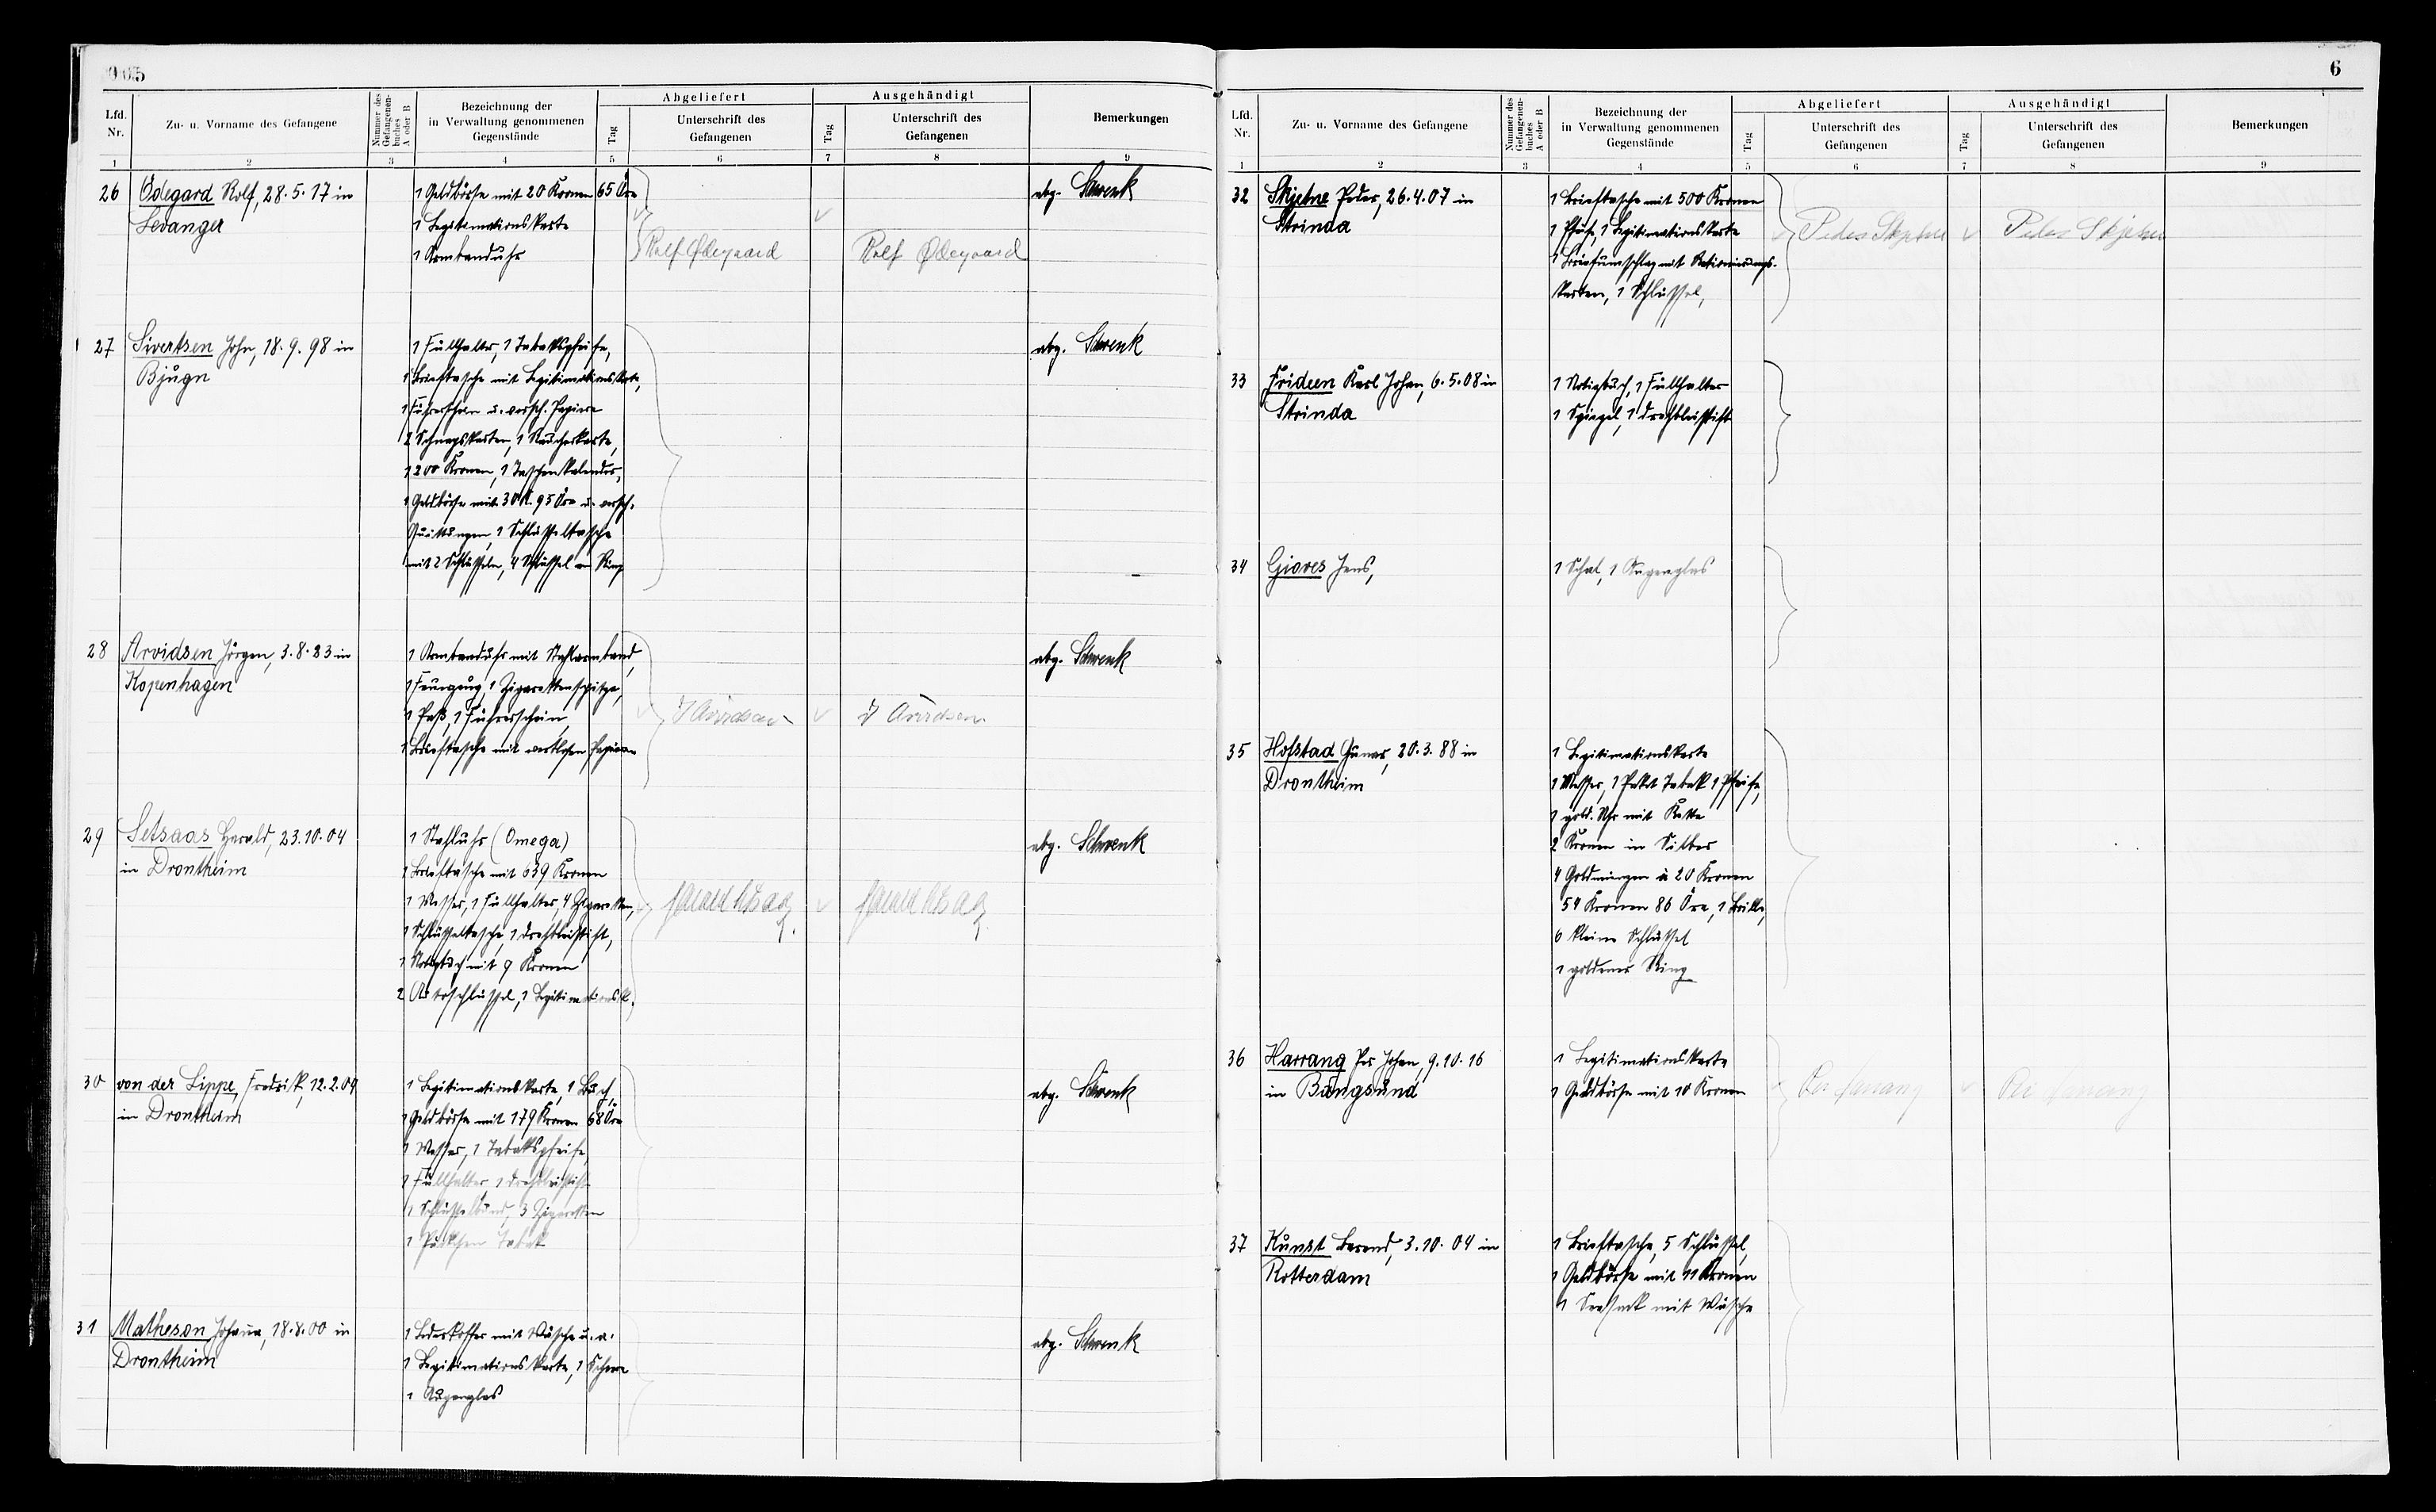 5
Lfd. Nr.
Zu- u. Vorname des Gefangene
Nummer des Gefangenen-buches A oder B
Bezeichnung der in Verwaltung genommenen Gegenstände
Abgeliefert
Tag
Unterschrift des Gefangenen
Ausgehändigt
Tag
Unterschrift des Gefangenen
Bemerkungen
1 2 3 4 5 6 7 8 9
26 Ödegard Rolf, 28.5.17 in
Levanger
1 Geldbörse mit 20 Kronen 65 Öre
1 Legitimationskarte
1 Armbanduhr
Rolf Ødegaard
Rolf Ødegaard
abg. Schrenk
27 Sivertsen John, 18.9.98 in
Bjugn
1 Füllhalter, 1 Tabakspfeife,
1 Brieftasche mit Legitimationskarte,
1 Führerschein u. versch. Papiere
2 Schnapskarten, 1 Raucherkarte,
1200 Kronen, 1 Taschenkalender,
1 Geldbörse mit 30 K. 95 Öre u. versch.
Quittungen, 1 Schlüsseltasche
mit 2 Schlüsseln, 4 Schlüssel am Ring
abg. Schrenk
28 Arvidsen Jörgen, 3.8.23 in
Kopenhagen
1 Armbanduhr mit Stahlarmband,
1 Feuerzeug, 1 Zigarettenspitze,
1 Paß, 1 Führerschein,
1 Brieftasche mit wertlosen Papieren
J Arvidsen
J Arvidsen
abg. Schrenk
29 Setsaas Harald, 23.10.04
in Drontheim
1 Stahluhr (Omega)
1 Brieftasche mit 639 Kronen
1 Messer, 1 Füllhalter, 4 Zigaretten,
1 Schlüsseltasche, 1 Drehbleistift,
1 Notizbuch mit 9 Kronen
2 Autoschlüssel, 1 Legitimationsk.
abg. Schrenk
30 von der Lippe, Fredrik, 12.2.04
in Drontheim
1 Legitimationskarte, 1 Buch,
1 Geldbörse mit 179 Kronen 68 Öre
1 Messer, 1 Tabakspfeife,
1 Füllhalter, 1 Drehbleistift
1 Schlüsselbund, 3 Zigaretten
1 Päckchen Tabak
abg. Schrenk
31 Matheson Johann, 18.8.00 in
Drontheim
1 Lederkoffer mit Wäsche u. a.
1 Legitimationskarte, 1 Schere
1 Augenglas
abg. Schrenk
6
Lfd. Nr.
Zu- u. Vorname des Gefangene
Nummer des Gefangenen-buches A oder B
Bezeichnung der in Verwaltung genommenen Gegenstände
Abgeliefert
Tag
Unterschrift des Gefangenen
Ausgehändigt
Tag
Unterschrift des Gefangenen
Bemerkungen
1 2 3 4 5 6 7 8 9
32 Skjetne Peder, 26.4.07 in
Strinda
1 Brieftasche mit 500 Kronen
1 Pfeife, 1 Legitimationskarte
1 Briefumschlag mit Rationierungs-
karten, 1 Schlüssel,
Peder Skjetne
Peder Skjetne
33 Frideen Karl Johan, 6.5.08 in
Strinda
1 Notizbuch, 1 Füllhalter
1 Spiegel, 1 Drehbleistift
34 Giæves Jens,
1 Schal, 1 Augenglas
35 Hofstad Gunar, 20.3.88 in
Drontheim
1 Legitimationskarte
1 Messer, 1 Paket Tabak 1 Pfeife,
1 gold. Uhr mit Kette
2 Kronen in Silber
4 Goldmünzen à 20 Kronen
54 Kronen 86 Öre, 1 Brille,
6 kleine Schlüssel
1 goldener Ring
36 Harrang Per Johan, 9.10.16
in Bangsund
1 Legitimationskarte
1 Geldbörse mit 10 Kronen
Per Harrang
Per Harrang
37 Kunst Berend, 3.10.04 in
Rotterdam
1 Brieftasche, 5 Schlüssel,
1 Geldbörse mit 11 Kronen
1 Seesack mit Wäsche